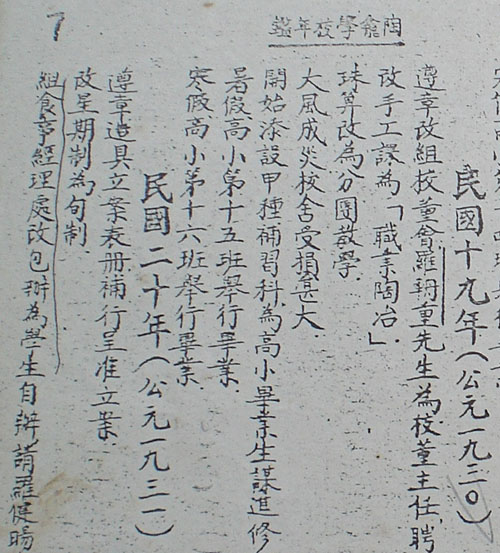 陶龕學校年鑑
7
民國十九年（公元一九三〇）
遵章改組校董會羅輈重先生為校董主任,聘
改手工課為「職業陶冶」
珠算改為分團教學.
大風成災校舍受損甚大.
開始添設甲種補習科,為高小畢業生謀進修
暑假高小第十五班舉行畢業.
寒假高小第十六班舉行畢業.
民國二十年（公元一九三一）
遵章造具立案表冊.補行呈准立案
改星期制為旬制.
組食事經理處改包辦為學生自辦請羅健暘